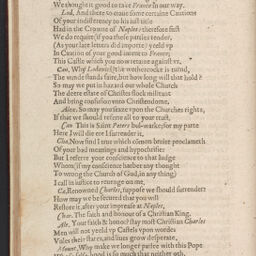 We thought it good to take France in our way.
Lod. And there to craue some certaine Cautions
Of your indifferency to his iust title
Had in the Crowne of Naples: therefore first
We do require (if you these parties tender,
(As your late letters did importe) yeeld vp
In Caution of your good intent to France;
This Castle which you now retaine against vs,
Cæs. Why Lodowick the wethercocke is turnd,
The winde stands faire, but how long will that hold?
So may we put in hazard our whole Church
The deere estate of Christes flock militant
And bring confusion into Christendome,
Alex. So may you staine vpon the Churches rights,
If that we should refuse all to your trust,
Cæs This is Saint Peters bul-warke; for my parte
Here I will die ere I surrender it,
Cha. Now find I true which cómon bruite proclameth
Of your bad meanings and hypocrisies
But I reserve your conscience to that Iudge
Whom (if my conscience harbor any thought
To wrong the Church of God, in any thing)
I call in iustice to reuenge on me,
Cæ. Renowned Charles, suppose we should surrender
How may we be secured that you will
Restore it, after your impreale at Naples,
Char. The faith and honour of a Christian King,
Ale. Your faith & honor? stay most Christian Charles
Men will not yeeld vp Castels vpon wordes
Vales their starres, and liues grow desperate,
Mount. Why make we longer parlee with this Pope